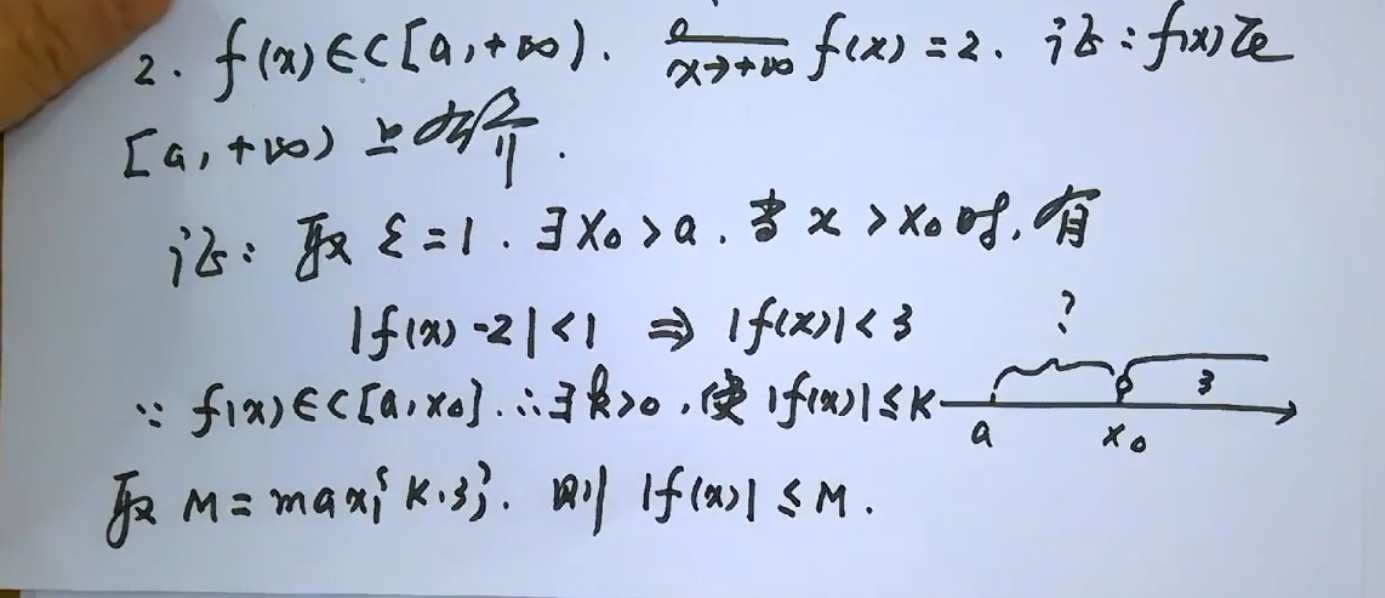 2. f(x)∈C[a,+∞). lim x→+∞ f(x)=2. 证:f(x)在
[a,+∞)上有界.
证: 取 ε=1. ∃X₀>a. 当 x>X₀时,有
|f(x)-2|<1 ⇒ |f(x)|<3
?
∵ f(x)∈C[a,X₀]. ∴∃k>0,使 |f(x)|≤K
3
a X₀
取 M=max{K,3}. 则 |f(x)|≤M.